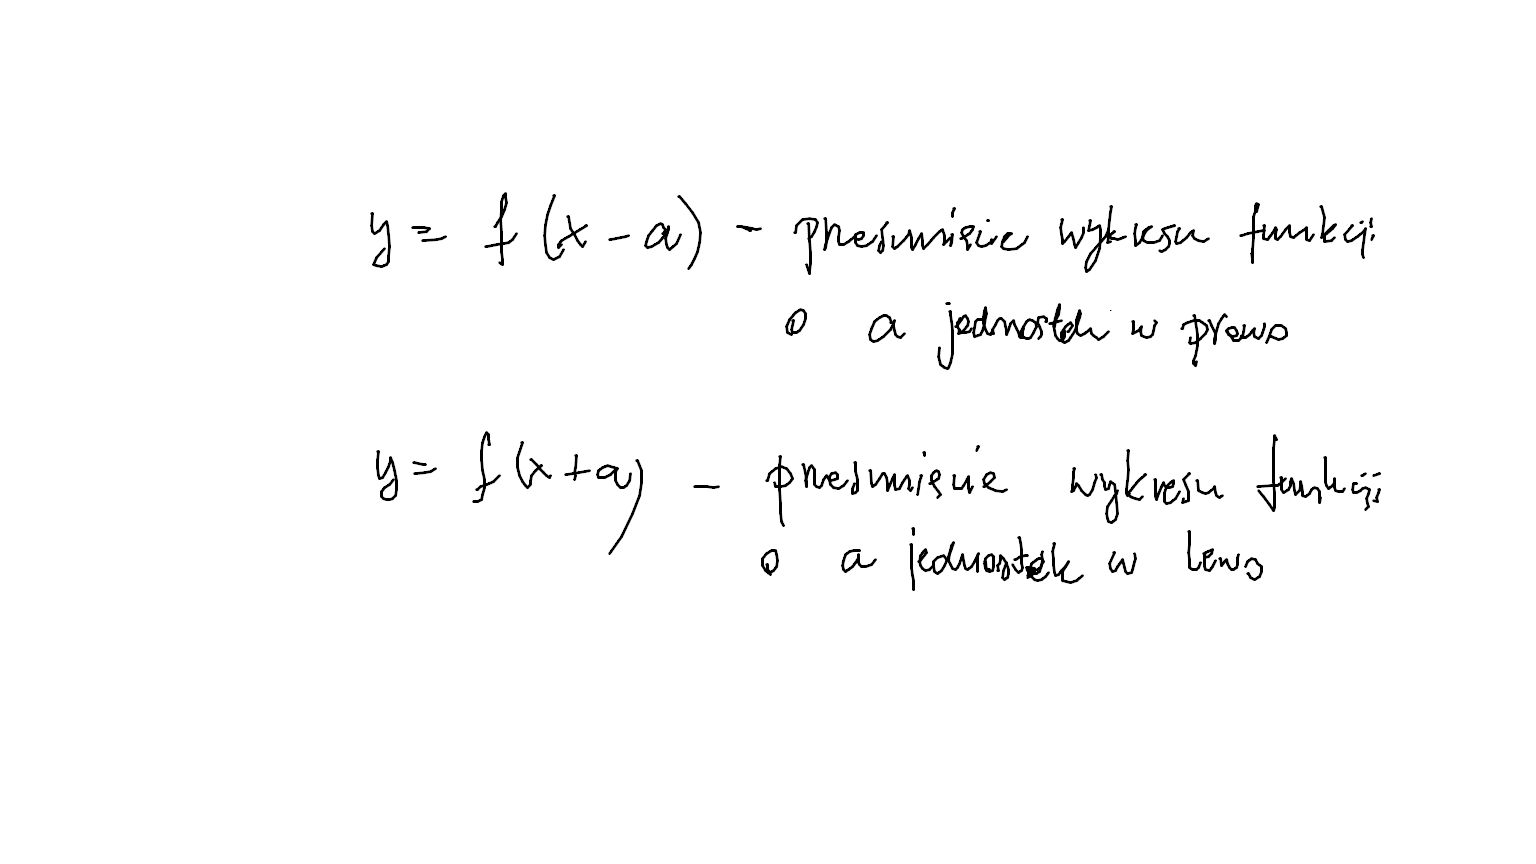 y = f(x - a) - przesunięcie wykresu funkcji
o a jednostek w prawo
y = f(x + a) - przesunięcie wykresu funkcji
o a jednostek w lewo